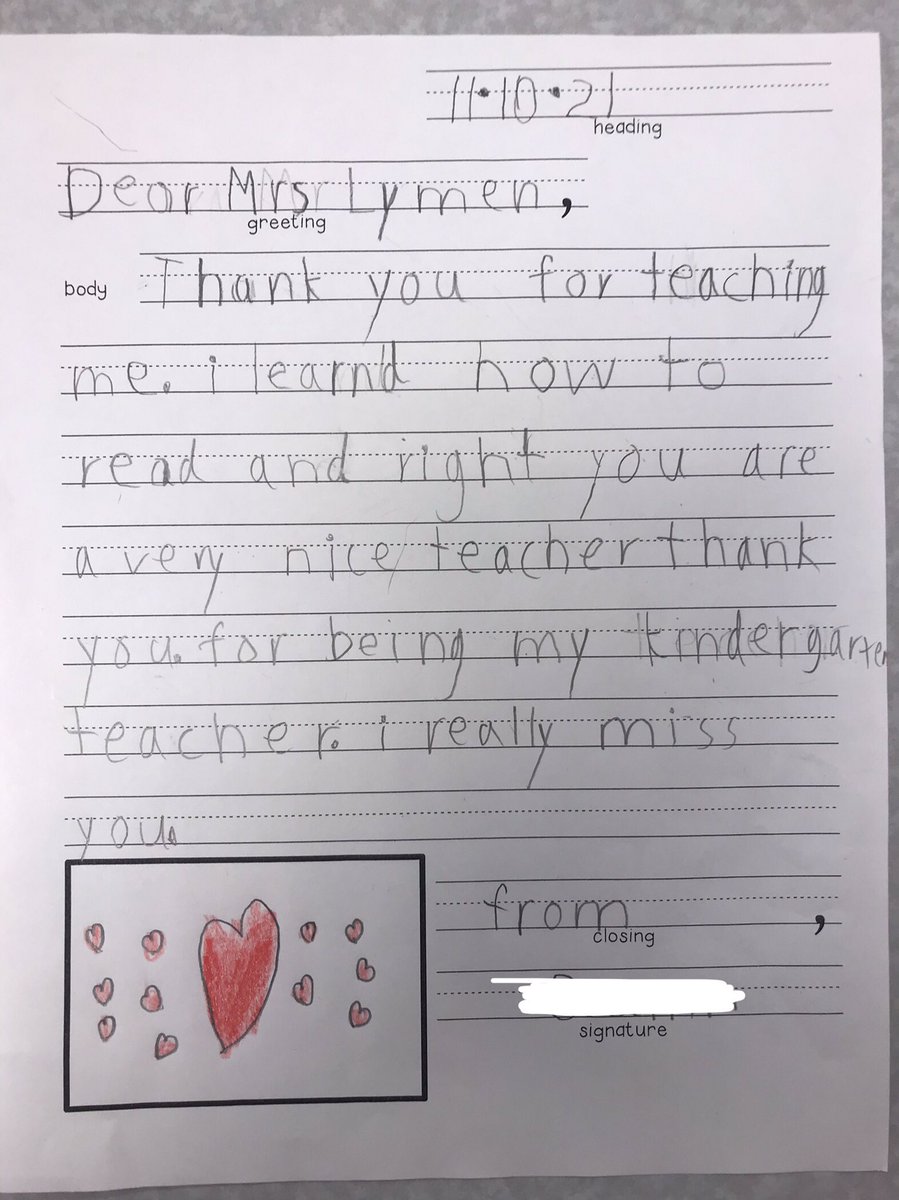 11•10•21
heading
Dear Mrs Lymen,
greeting
body
Thank you for teaching
me. i learnd how to
read and right you are
a very nice teacher thank
you. for being my kindergarten
teacher. i really miss
you.
from ,
closing
signature